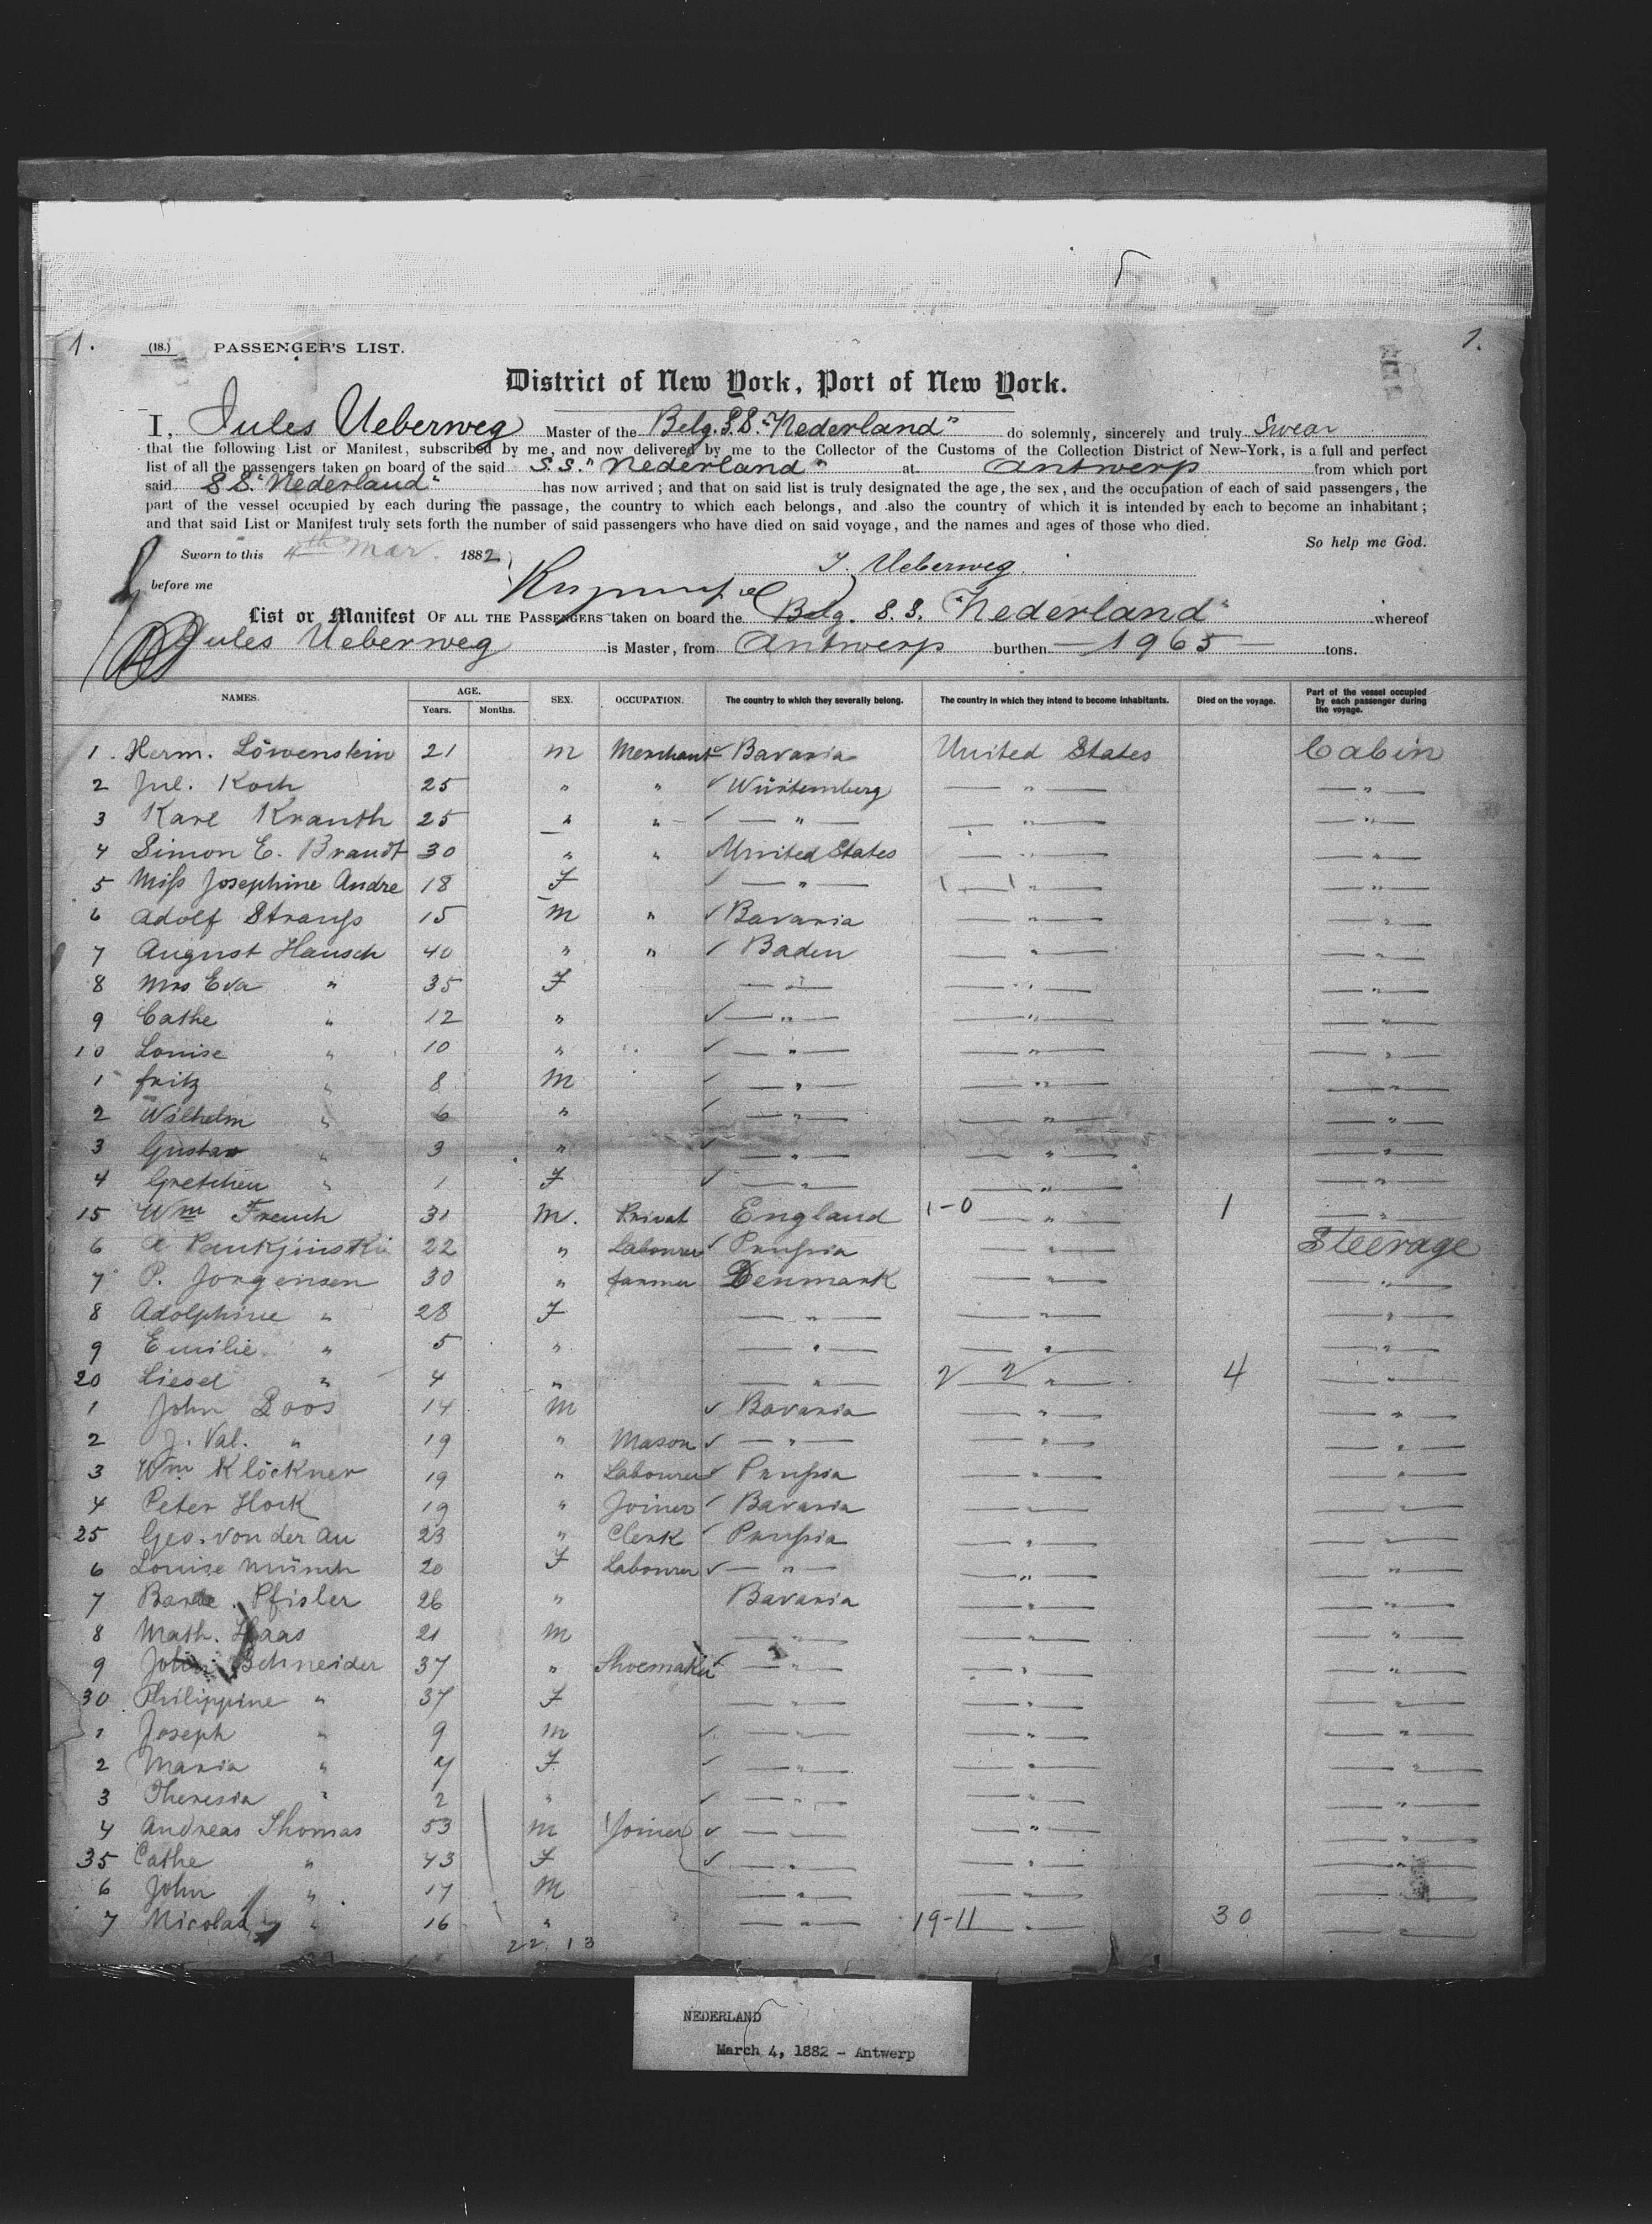 1. (18.) PASSENGER'S LIST. 1.
District of New York, Port of New York.
I, Jules Ueberweg Master of the Belg. S.S. "Nederland" do solemnly, sincerely and truly Swear
that the following List or Manifest, subscribed by me, and now delivered by me to the Collector of the Customs of the Collection District of New-York, is a full and perfect
list of all the passengers taken on board of the said S.S. "Nederland" at Antwerp from which port
said S.S. "Nederland" has now arrived; and that on said list is truly designated the age, the sex, and the occupation of each of said passengers, the
part of the vessel occupied by each during the passage, the country to which each belongs, and also the country of which it is intended by each to become an inhabitant;
and that said List or Manifest truly sets forth the number of said passengers who have died on said voyage, and the names and ages of those who died.
So help me God.
Sworn to this 4th Mar. 1882
J. Ueberweg
before me
List or Manifest OF ALL THE PASSENGERS taken on board the Belg. S.S. "Nederland" whereof
Jules Ueberweg is Master, from Antwerp burthen — 1965 — tons.
NAMES. AGE. Years. Months. SEX. OCCUPATION. The country to which they severally belong. The country in which they intend to become inhabitants. Died on the voyage. Part of the vessel occupied by each passenger during the voyage.
1. Herm. Löwenstein 21 M Merchant Bavaria United States Cabin
2 Jul. Koch 25 " " ✓ Würtemberg — " — — " —
3 Karl Krauth 25 " " ✓ — " — — " — — " —
4 Simon E. Brandt 30 " " United States — " — — " —
5 Miss Josephine Andre 18 F ✓ — " — — " — — " —
6 Adolf Strauss 15 M " ✓ Bavaria — " — — " —
7 August Hausch 40 " " ✓ Baden — " — — " —
8 Mrs Eva " 35 F — " — — " — — " —
9 Cathe " 12 " ✓ — " — — " — — " —
10 Louise " 10 " ✓ — " — — " — — " —
1 Fritz " 8 M ✓ — " — — " — — " —
2 Wilhelm " 6 " ✓ — " — — " — — " —
3 Gustav " 3 " ✓ — " — — " — — " —
4 Gretchen " 1 F ✓ — " — — " — — " —
15 Wm French 31 M. Privat England 1-0 — " — 1 — " —
6 22 " Labourer ✓ Prussia — " — Steerage
7 P. Jorgensen 30 " farmer Denmark — " — — " —
8 Adolphine " 28 F — " — — " — — " —
9 Emilie " 5 " — " — — " — — " —
20 Liesel " 4 " — " — 2 2 — " — 4 — " —
1 John Roos 14 M ✓ Bavaria — " — — " —
2 J. Val. " 19 " Mason ✓ — " — — " — — " —
3 Wm Klöckner 19 " Labourer ✓ Prussia — " — — " —
4 Peter Hock 19 " Joiner ✓ Bavaria — " — — " —
25 Geo. von der Au 23 " Clerk ✓ Prussia — " — — " —
6 Louise Münch 20 F Labourer ✓ — " — — " — — " —
7 Pfisler 26 " Bavaria — " — — " —
8 Math. Haas 21 M — " — — " — — " —
9 John Schneider 37 " Shoemaker — " — — " — — " —
30 Philippine " 37 F — " — — " — — " —
1 Joseph " 9 M ✓ — " — — " — — " —
2 Maria " 7 F ✓ — " — — " — — " —
3 Theresia " 2 " ✓ — " — — " — — " —
4 Andreas Thomas 53 M Joiner ✓ — " — — " — — " —
35 Cathe " 43 F ✓ — " — — " — — " —
6 John " 17 M — " — — " — — " —
7 Nicolas " 16 " — " — 19-11 — " — 30 — " —
22 13
NEDERLAND
March 4, 1882 - Antwerp